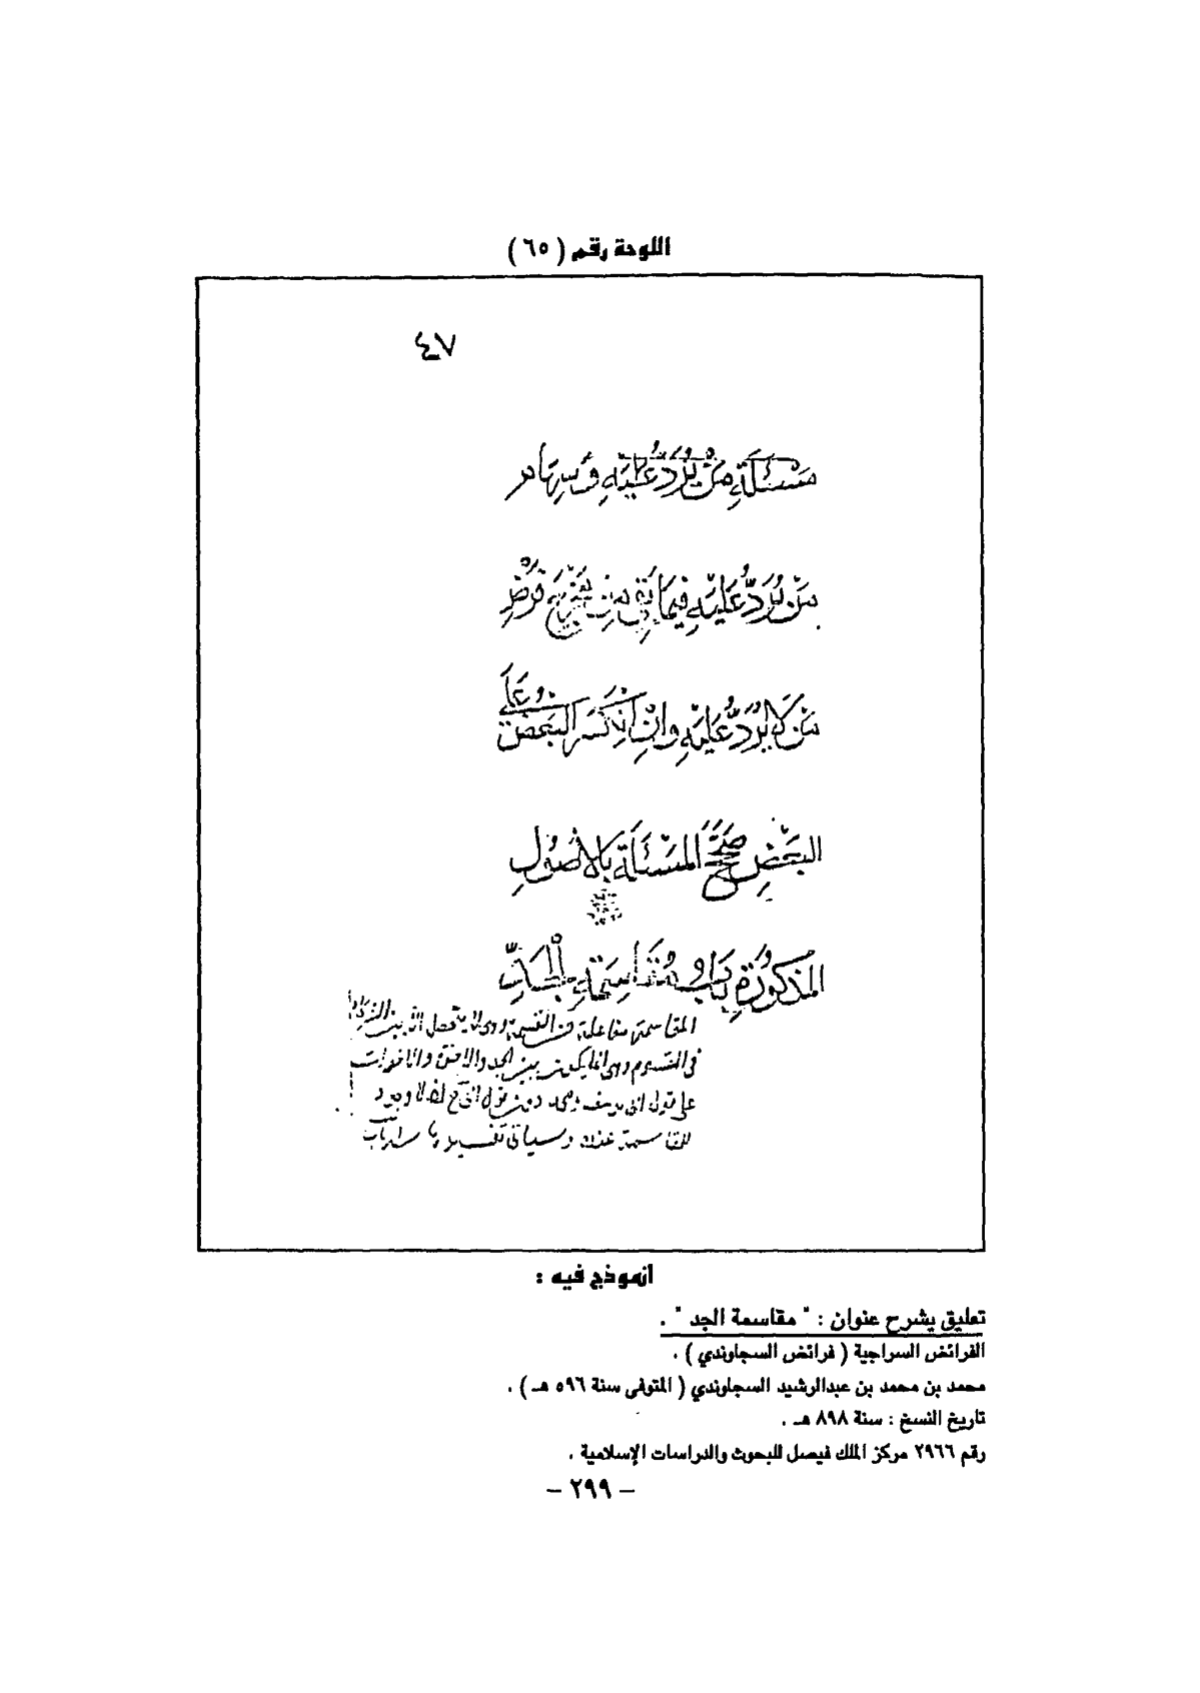 اللوحة رقم ( ٦٥ )
٤٧
مَسْئَلَةِ مَنْ يُرَدُّ عَلَيْهِ وَسِهَام
مَنْ يُرَدُّ عَلَيْهِ فِيمَا بَقِيَ مِنْ مَخْرَجِ فَرْضِ
مَنْ لَا يُرَدُّ عَلَيْهِ وَاِنِ انْكَسَرَ الْبَعْضُ عَلَى
البَعْضِ صَحِّحِ المَسْئَلَةَ بِالأُصُولِ
المَذْكُورَةِ بَابُ مُقَاسَمَةِ الْجَدِّ
المقاسمة مفاعلة من القسمة وهى لا يتحصل الا بين
فى المقسوم وهى انما يكون بين الجد والاخوة والاخوات
على قول ابى يوسف ومحمد دون قول ابى ح اذ لا وجود
للمقاسمة عنده وسياتى تفسيرها
انموذج فيه :
تعليق يشرح عنوان : " مقاسمة الجد " .
الفرائض السراجية ( فرائض السجاوندي ) .
محمد بن محمد بن عبدالرشيد السجاوندي ( المتوفى سنة ٥٩٦ هـ ) .
تاريخ النسخ : سنة ٨٩٨ هـ .
رقم ٢٩٦٦ مركز الملك فيصل للبحوث والدراسات الإسلامية .
– ٢٩٩ –